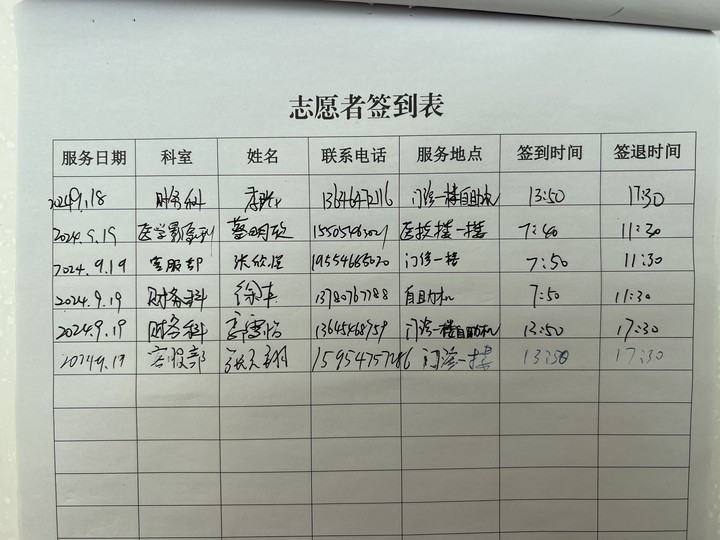 志愿者签到表
服务日期 科室 姓名 联系电话 服务地点 签到时间 签退时间
2024.9.18 财务科 门诊一楼自助机 13:50 17:30
2024.9.19 医学影像科 医技楼一楼 7:40 11:30
2024.9.19 客服部 张欣 19554665020 门诊一楼 7:50 11:30
2024.9.19 财务科 徐 13780767788 自助机 7:50 11:30
2024.9.19 财务科 13645468759 门诊一楼自助机 13:50 17:30
2024.9.19 客服部 张天翔 15954757786 门诊一楼 13:50 17:30